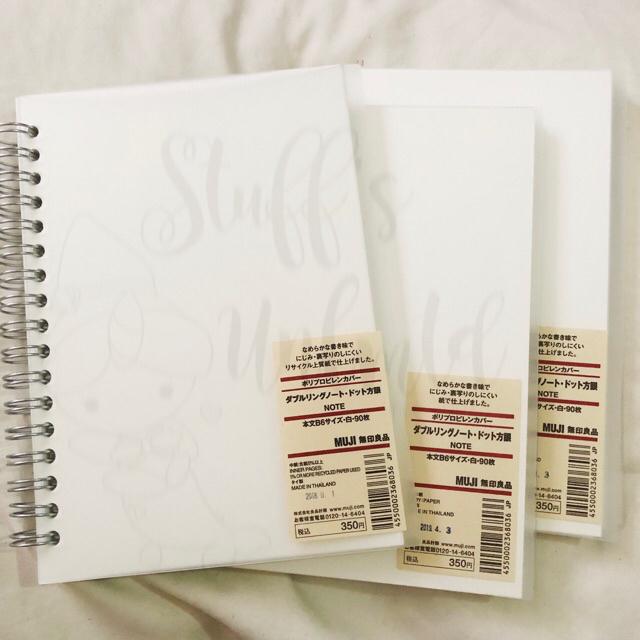 Stuff's
Unfold
なめらかな書き味で
にじみ・裏写りのしにくい
リサイクル上質紙で仕上げました。
ポリプロピレンカバー
ダブルリングノート・ドット方眼
NOTE
本文B6サイズ・白・90枚
MUJI 無印良品
INNER PAGES:
MADE IN THAILAND
株式会社良品計画 www.muji.com
お客様室電話0120-14-6404
税込 350円
4550002368036 JP
なめらかな書き味で
にじみ・裏写りのしにくい
紙で仕上げました。
ポリプロピレンカバー
ダブルリングノート・ドット方眼
NOTE
本文B6サイズ・白・90枚
MUJI 無印良品
IN THAILAND
2018 4. 3
良品計画 www.muji.com
電話0120-14-6404
税込 350円
4550002368036 JP
書き味で
のしにくい
ました。
ピレンカバー
ノート・ドット方眼
NOTE
イズ・白・90枚
MUJI 無印良品
4. 3
www.muji.com
0120-14-6404
350円
4550002368036 JP